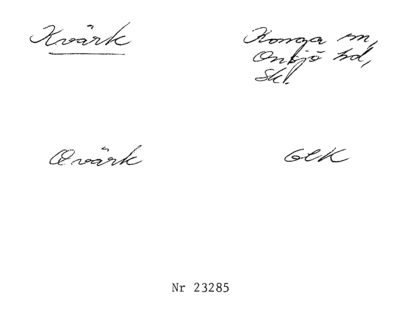 Kvärk
Konga sn,
Onsjö hd,
Skl.
Qvärk
GEK
Nr 23285